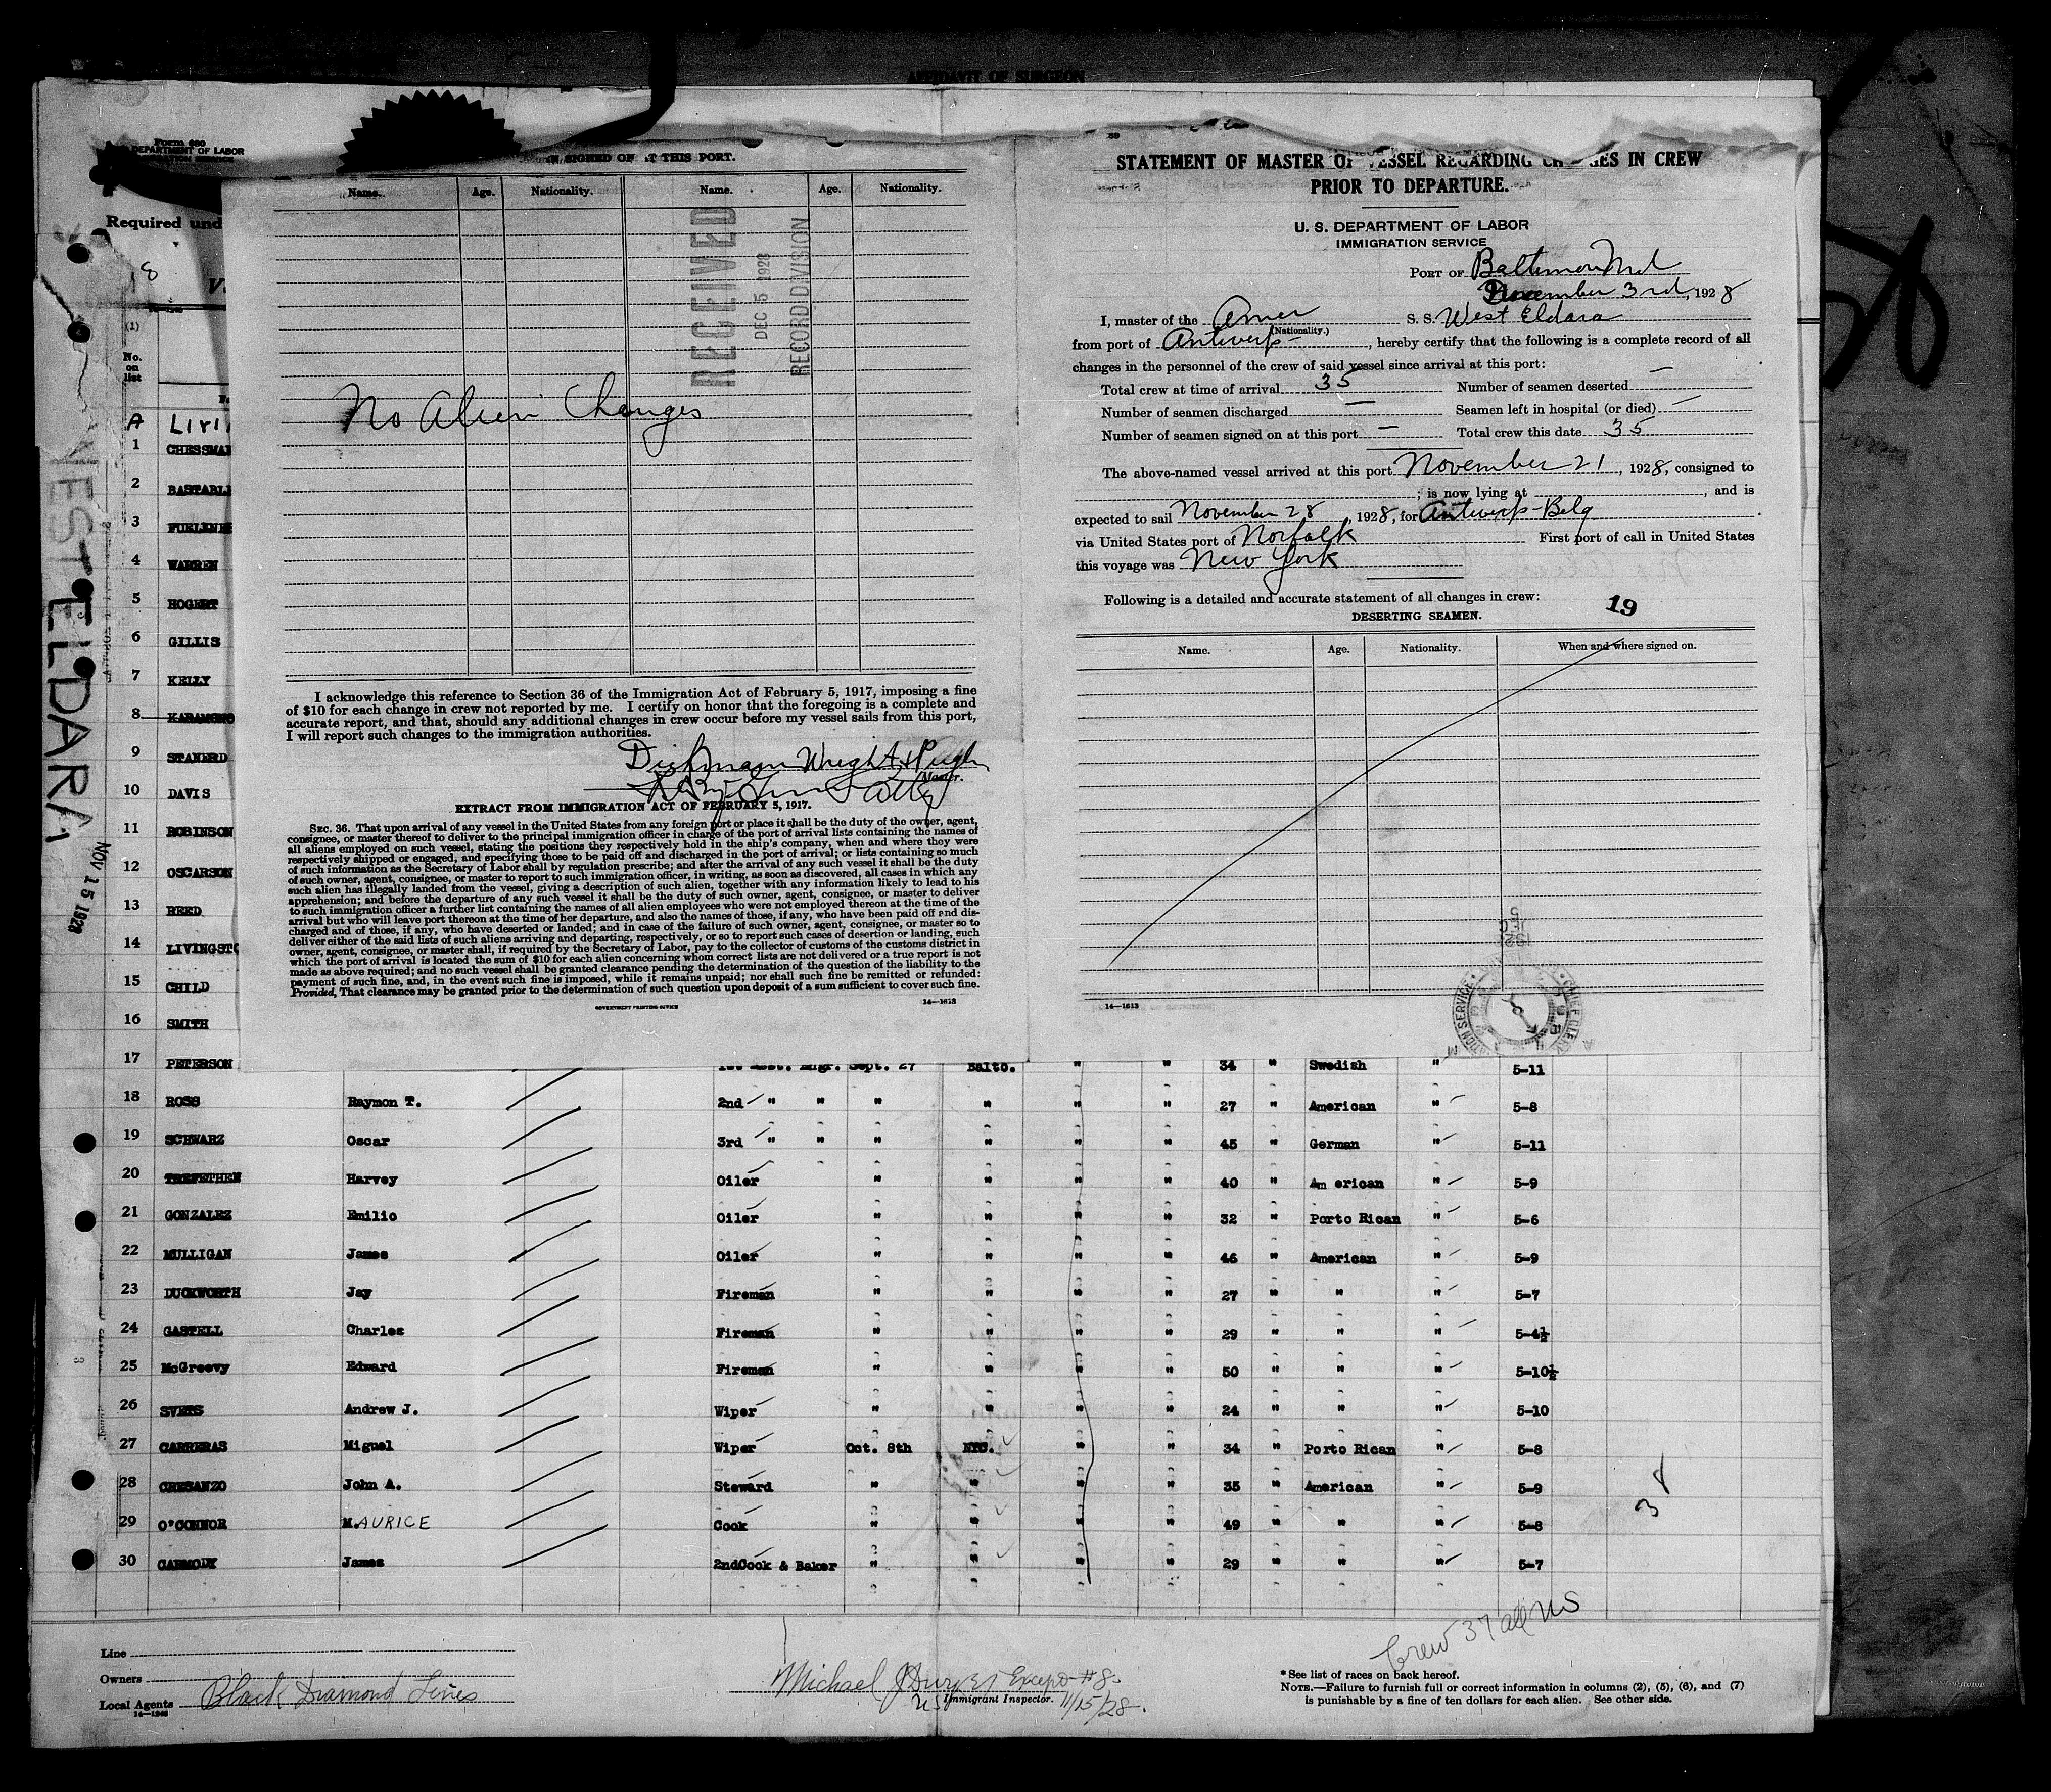 AFFIDAVIT OF SURGEON
Form 680
DEPARTMENT OF LABOR
Required und
18
(1)
No.
on
list
A LIVI
1 CHESSMAN
2 BASTABL
3
4 WARREN
5 HOGERT
6 GILLIS
7 KELLY
8 KARAMONO
9 STANERD
10 DAVIS
11 ROBINSON
12 OSCARSON
13 REED
14 LIVINGSTO
15 CHILD
16 SMITH
WEST ELDARA
NOV 15 1928
SIGNED ON AT THIS PORT.
Name. Age. Nationality. Name. Age. Nationality.
RECEIVED
DEC 5 1928
RECORD DIVISION
No Alien Changes
I acknowledge this reference to Section 36 of the Immigration Act of February 5, 1917, imposing a fine
of $10 for each change in crew not reported by me. I certify on honor that the foregoing is a complete and
accurate report, and that, should any additional changes in crew occur before my vessel sails from this port,
I will report such changes to the immigration authorities.
Dichmann Wright & Pugh
Master.
EXTRACT FROM IMMIGRATION ACT OF FEBRUARY 5, 1917.
SEC. 36. That upon arrival of any vessel in the United States from any foreign port or place it shall be the duty of the owner, agent,
consignee, or master thereof to deliver to the principal immigration officer in charge of the port of arrival lists containing the names of
all aliens employed on such vessel, stating the positions they respectively hold in the ship's company, when and where they were
respectively shipped or engaged, and specifying those to be paid off and discharged in the port of arrival; or lists containing so much
of such information as the Secretary of Labor shall by regulation prescribe; and after the arrival of any such vessel it shall be the duty
of such owner, agent, consignee, or master to report to such immigration officer, in writing, as soon as discovered, all cases in which any
such alien has illegally landed from the vessel, giving a description of such alien, together with any information likely to lead to his
apprehension; and before the departure of any such vessel it shall be the duty of such owner, agent, consignee, or master to deliver
to such immigration officer a further list containing the names of all alien employees who were not employed thereon at the time of the
arrival but who will leave port thereon at the time of her departure, and also the names of those, if any, who have been paid off and dis-
charged and of those, if any, who have deserted or landed; and in case of the failure of such owner, agent, consignee, or master so to
deliver either of the said lists of such aliens arriving and departing, respectively, or so to report such cases of desertion or landing, such
owner, agent, consignee, or master shall, if required by the Secretary of Labor, pay to the collector of customs of the customs district in
which the port of arrival is located the sum of $10 for each alien concerning whom correct lists are not delivered or a true report is not
made as above required; and no such vessel shall be granted clearance pending the determination of the question of the liability to the
payment of such fine, and, in the event such fine is imposed, while it remains unpaid; nor shall such fine be remitted or refunded:
Provided, That clearance may be granted prior to the determination of such question upon deposit of a sum sufficient to cover such fine.
GOVERNMENT PRINTING OFFICE 14—1613
STATEMENT OF MASTER OF VESSEL REGARDING CHANGES IN CREW
PRIOR TO DEPARTURE.
U. S. DEPARTMENT OF LABOR
IMMIGRATION SERVICE
PORT OF Baltimore Md
November 3rd, 1928
I, master of the Amer S. S. West Eldara
(Nationality.)
from port of Antwerp, hereby certify that the following is a complete record of all
changes in the personnel of the crew of said vessel since arrival at this port:
Total crew at time of arrival 35 Number of seamen deserted —
Number of seamen discharged — Seamen left in hospital (or died) —
Number of seamen signed on at this port — Total crew this date 35
The above-named vessel arrived at this port November 21, 1928, consigned to
; is now lying at , and is
expected to sail November 28, 1928, for Antwerp-Belg.
via United States port of Norfolk First port of call in United States
this voyage was New York
Following is a detailed and accurate statement of all changes in crew:
19
DESERTING SEAMEN.
Name. Age. Nationality. When and where signed on.
14—1613
17 PETERSON 1st Asst. Engr. Sept. 27 Balto. " " 34 " Swedish " 5-11
18 ROSS Raymon T. 2nd " " " " " " 27 " American " 5-8
19 SCHWARZ Oscar 3rd " " " " " " 45 " German " 5-11
20 TREFETHEN Harvey Oiler " " " " 40 " Am erican " 5-9
21 GONZALEZ Emilio Oiler " " " " 32 " Porto Rican " 5-6
22 MULLIGAN James Oiler " " " " 46 " American " 5-9
23 DUCKWORTH Jay Fireman " " " " 27 " " " 5-7
24 GASTELL Charles Fireman " " " " 29 " " " 5-4½
25 McGreevy Edward Fireman " " " " 50 " " " 5-10½
26 SVETS Andrew J. Wiper " " " " 24 " " " 5-10
27 CARRERAS Miguel Wiper Oct. 8th NYC. " " 34 " Porto Rican " 5-8
28 CRESANZO John A. Steward " " " " 35 " American " 5-9
29 O'CONNOR MAURICE Cook " " " " 49 " " " 5-8
30 CARMODY James 2ndCook & Baker " " " " 29 " " " 5-7
38
Crew 37 all US
Line
Owners
Local Agents Black Diamond Lines
14—1240
Michael J Dwyer Except #8.
US Immigrant Inspector. 11/15/28.
*See list of races on back hereof.
NOTE.—Failure to furnish full or correct information in columns (2), (5), (6), and (7)
is punishable by a fine of ten dollars for each alien. See other side.